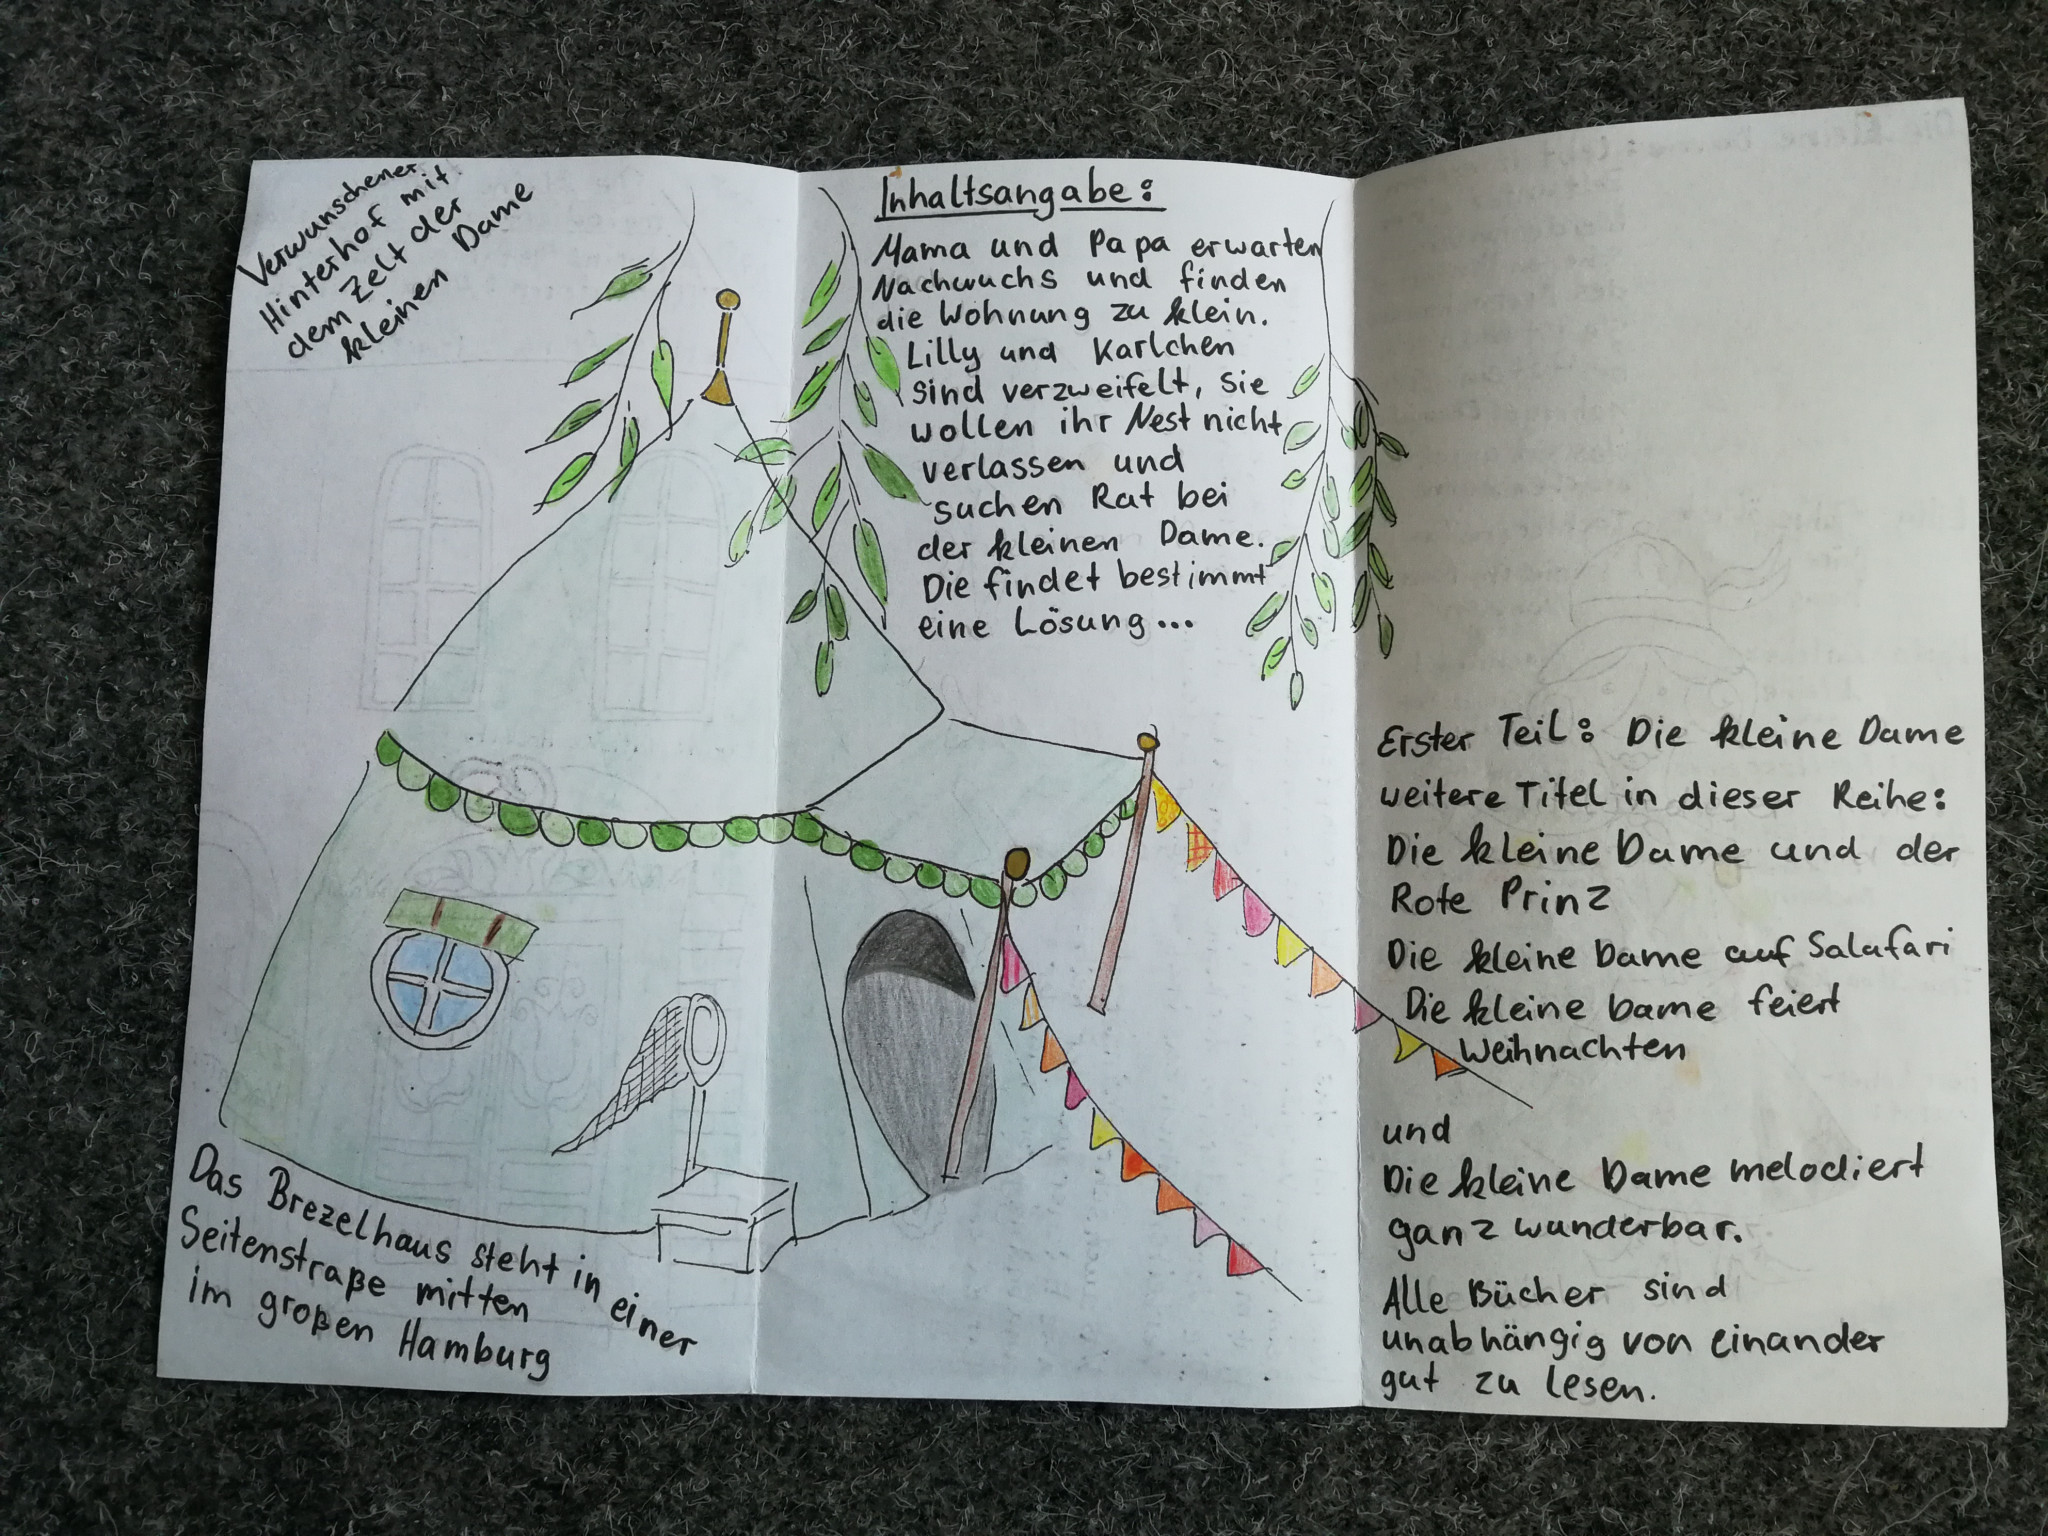 Verwunschener
Hinterhof mit
dem Zelt der
kleinen Dame
Das Brezelhaus steht in einer
Seitenstraße mitten
im großen Hamburg
Inhaltsangabe:
Mama und Papa erwarten
Nachwuchs und finden
die Wohnung zu klein.
Lilly und Karlchen
sind verzweifelt, sie
wollen ihr Nest nicht
verlassen und
suchen Rat bei
der kleinen Dame.
Die findet bestimmt
eine Lösung...
Erster Teil: Die kleine Dame
weitere Titel in dieser Reihe:
Die kleine Dame und der
Rote Prinz
Die kleine Dame auf Salafari
Die kleine Dame feiert
Weihnachten
und
Die kleine Dame melodiert
ganz wunderbar.
Alle Bücher sind
unabhängig von einander
gut zu lesen.